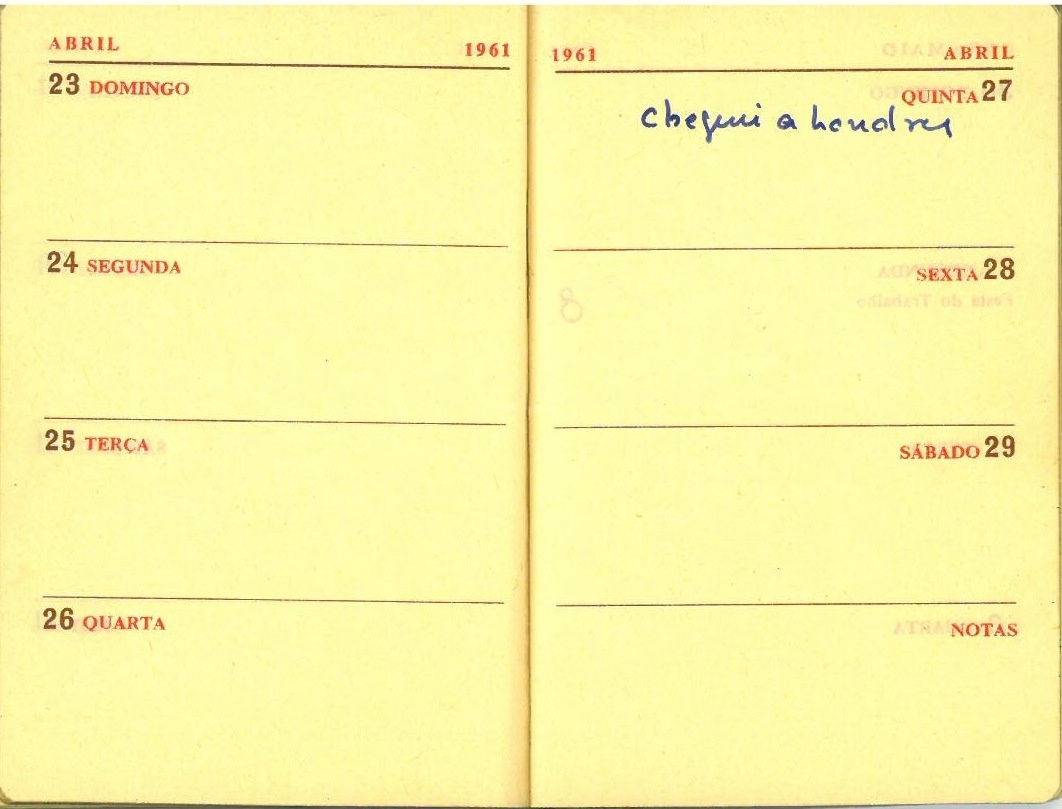 ABRIL 1961
23 DOMINGO
24 SEGUNDA
25 TERÇA
26 QUARTA
1961 ABRIL
QUINTA 27
Cheguei a Londres
SEXTA 28
SÁBADO 29
NOTAS